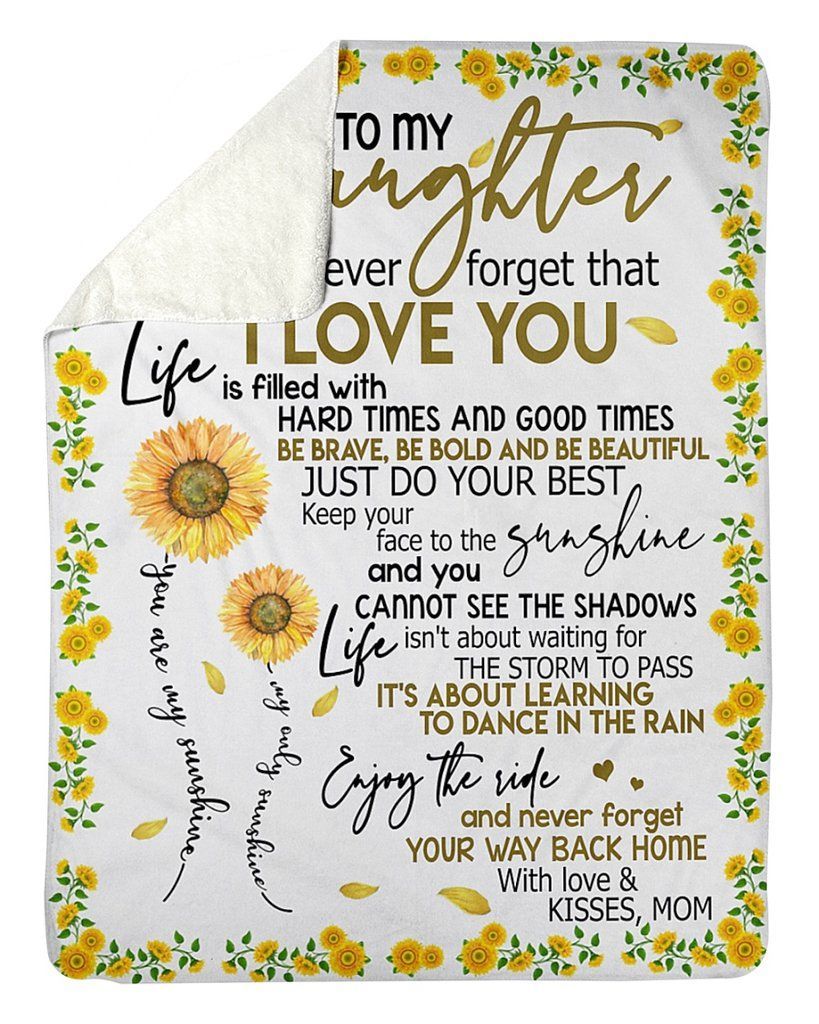 TO MY
aughter
ever forget that
I LOVE YOU
Life is filled with
HARD TIMES AND GOOD TIMES
BE BRAVE, BE BOLD AND BE BEAUTIFUL
JUST DO YOUR BEST
Keep your
face to the sunshine
and you
CANNOT SEE THE SHADOWS
Life isn't about waiting for
THE STORM TO PASS
IT'S ABOUT LEARNING
TO DANCE IN THE RAIN
Enjoy the ride
and never forget
YOUR WAY BACK HOME
With love &
KISSES, MOM
you are my sunshine
my only sunshine